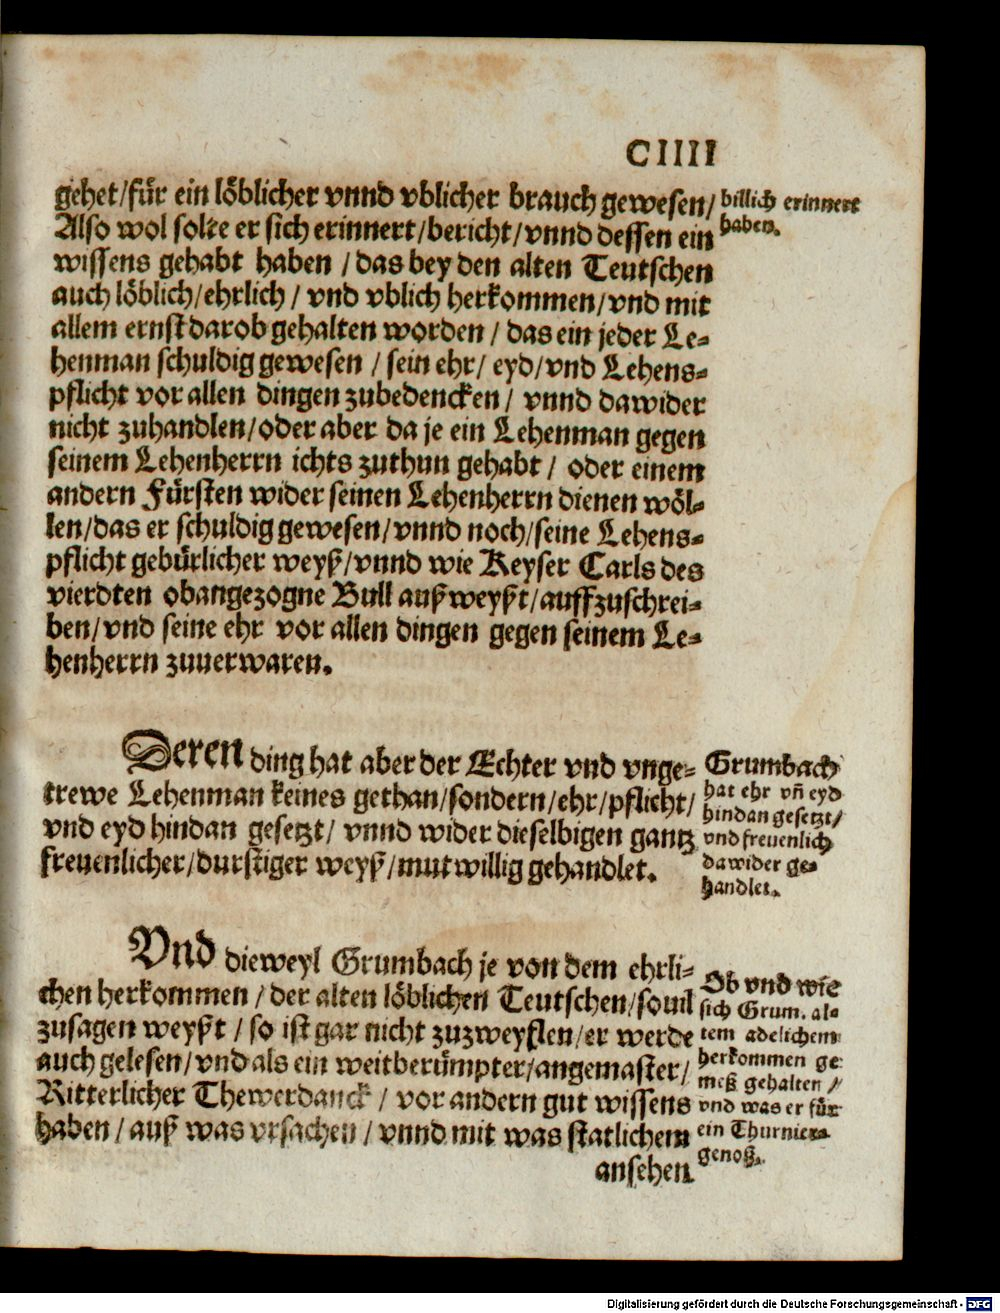 CIIII
gehet/für ein löblicher vnnd vblicher brauch gewesen/
Also wol solte er sich erinnert/bericht/vnnd dessen ein
wissens gehabt haben / das bey den alten Teutschen
auch löblich/ehrlich / vnd vblich herkommen/vnd mit
allem ernst darob gehalten worden / das ein jeder Le-
henman schuldig gewesen / sein ehr/ eyd/vnd Lehens-
pflicht vor allen dingen zubedencken / vnnd dawider
nicht zuhandlen/oder aber da je ein Lehenman gegen
seinem Lehenherrn ichts zuthun gehabt / oder einem
andern Fürsten wider seinen Lehenherrn dienen wöl-
len/das er schuldig gewesen/vnnd noch/seine Lehens-
pflicht gebürlicher weyß/vnnd wie Keyser Carls des
vierdten obangezogne Bull außweyßt/auffzuschrei-
ben/vnd seine ehr vor allen dingen gegen seinem Le-
henherrn zuuerwaren.
billich erinnert
haben.
Deren ding hat aber der Echter vnd vnge-
trewe Lehenman keines gethan/sondern/ehr/pflicht/
vnd eyd hindan gesetzt/ vnnd wider dieselbigen gantz
freuenlicher/durstiger weyß/mutwillig gehandlet.
Grumbach
hat ehr vñ eyd
hindan gesetzt/
vnd freuenlich
dawider ge-
handlet.
Vnd dieweyl Grumbach je von dem ehrli-
chen herkommen / der alten löblichen Teutschen/souil
zusagen weyßt / so ist gar nicht zuzweyflen/er werde
auch gelesen/vnd als ein weitberümpter/angemaster/
Ritterlicher Thewerdanck / vor andern gut wissens
haben / auß was vrsachen / vnnd mit was statlichem
ansehen
Ob vnd wie
sich Grum. al-
tem adelichem
herkommen ge
meß gehalten /
vnd was er für
ein Thurniers
genoß.
Digitalisierung gefördert durch die Deutsche Forschungsgemeinschaft - DFG